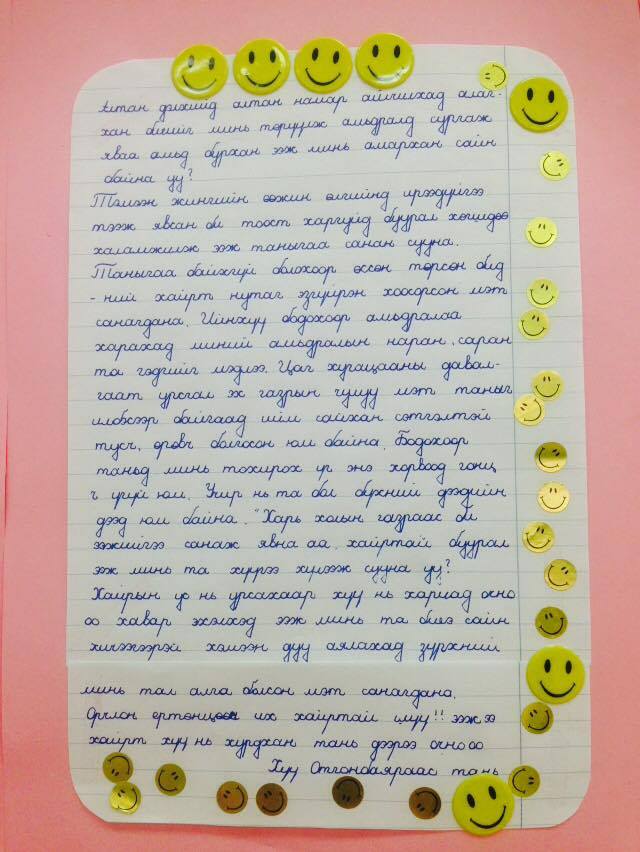 Алтан дэлхийд алтан намар айлчлахад алаг-
хан бичгийг минь төрүүлж амьдралд сургаж
яваа амьд бурхан ээж минь амархан сайн
байна уу?
Тэмээн жингийн өөжин өлгийнд ирээдүйгээ
тээж явсан би тоост харгуйд буурал хөгшдөө
халамжилж ээж таныгаа санан сууна.
Таныгаа байхгүй болохоор өссөн төрсөн бид
-ний хайрт нутаг эзгүйрэн хоосорсон мэт
санагдана. Ийнхүү бодохоор амьдралаа
харахад миний амьдралын наран, саран
та гэдгийг мэдлээ. Цаг хугацааны давал-
гаат урсгал эх газрын чулуу мэт таныг
илбэсээр байгаад ийм сайхан сэтгэлтэй
тусч, өрөвч болгосон юм байна. Бодохоор
таньд минь тохирох үг энэ хорвоод ганц
ч үгүй юм. Учир нь та бол бүхний дээдийн
дээд юм байна. "Харь холын газраас би
ээжийгээ санаж явна аа, хайртай буурал
ээж минь та хүүгээ хүлээж сууна уу?
Хайрын ус нь урсахаар хүү нь хариад очно
оо хавар эхэлхэд ээж минь та биеэ сайн
хичээгээрэй хэмээн дуу аялахад зүрхний
минь тал алга болсон мэт санагдана.
Орчлон ертөнцөөс их хайртай шүү!! ээжээ
хайрт хүү нь хурдхан тань дээрээ очноо
Хүү Отгонбаяраас тань